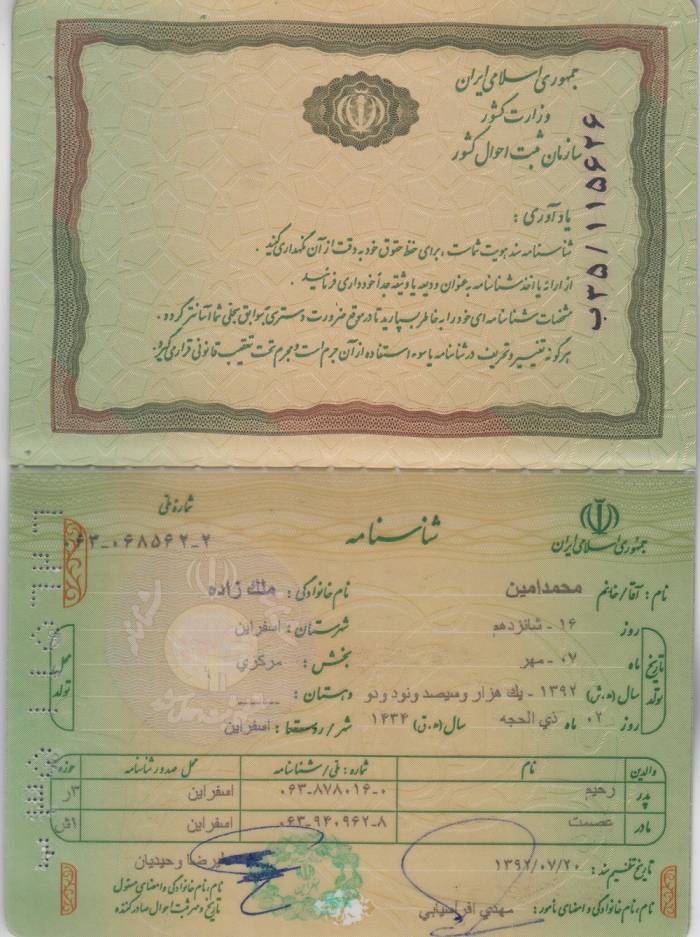 جمهوری اسلامی ایران
وزارت کشور
سازمان ثبت احوال کشور
ب۲۵/۱۱۵۶۲۶
یادآوری :
شناسنامه سند هویت شماست ، برای حفظ حقوق خود به دقت از آن نگهداری کنید .
از ارائه یا اخذ شناسنامه به عنوان ودیعه یا وثیقه جداً خودداری فرمائید .
مشخصات شناسنامه ای خود را به خاطر بسپارید تا در موقع ضرورت دسترسی بسوابق سجلی شما آسانتر گردد .
هرگونه تغییر و تحریف در شناسنامه یا سوء استفاده از آن جرم است و مجرم تحت تعقیب قانونی قرار می گیرد .
جمهوری اسلامی ایران
شناسنامه
شماره ملی
۰۶۳-۰۶۸۵۶۲-۲
نام : آقا/خانم محمدامین نام خانوادگی : ملك زاده
تاریخ تولد
روز ۱۶ - شانزدهم
ماه ۰۷ - مهر
سال (ه.ش) ۱۳۹۲ - يك هزار و سيصد و نود و دو
روز ۰۲ ماه ذي الحجه سال (ه.ق) ۱۴۳۴
محل تولد
شهرستان : اسفراين
بخش : مركزي
دهستان : ــــــ
شهر/روستا : اسفراين
والدین نام شماره : ملی/شناسنامه محل صدور شناسنامه حوزه
پدر رحيم ۰۶۳-۸۷۸۰۱۶-۰ اسفراين ۳ر
مادر عصمت ۰۶۳-۹۴۰۹۶۲-۸ اسفراين
تاریخ تنظیم سند : ۱۳۹۲/۰۷/۲۰
نام ، نام خانوادگی و امضای مأمور : مهدي افراسيابي
عليرضا وحيديان
نام ، نام خانوادگی و امضای مسئول
تاریخ و مهر ثبت احوال صادر کننده